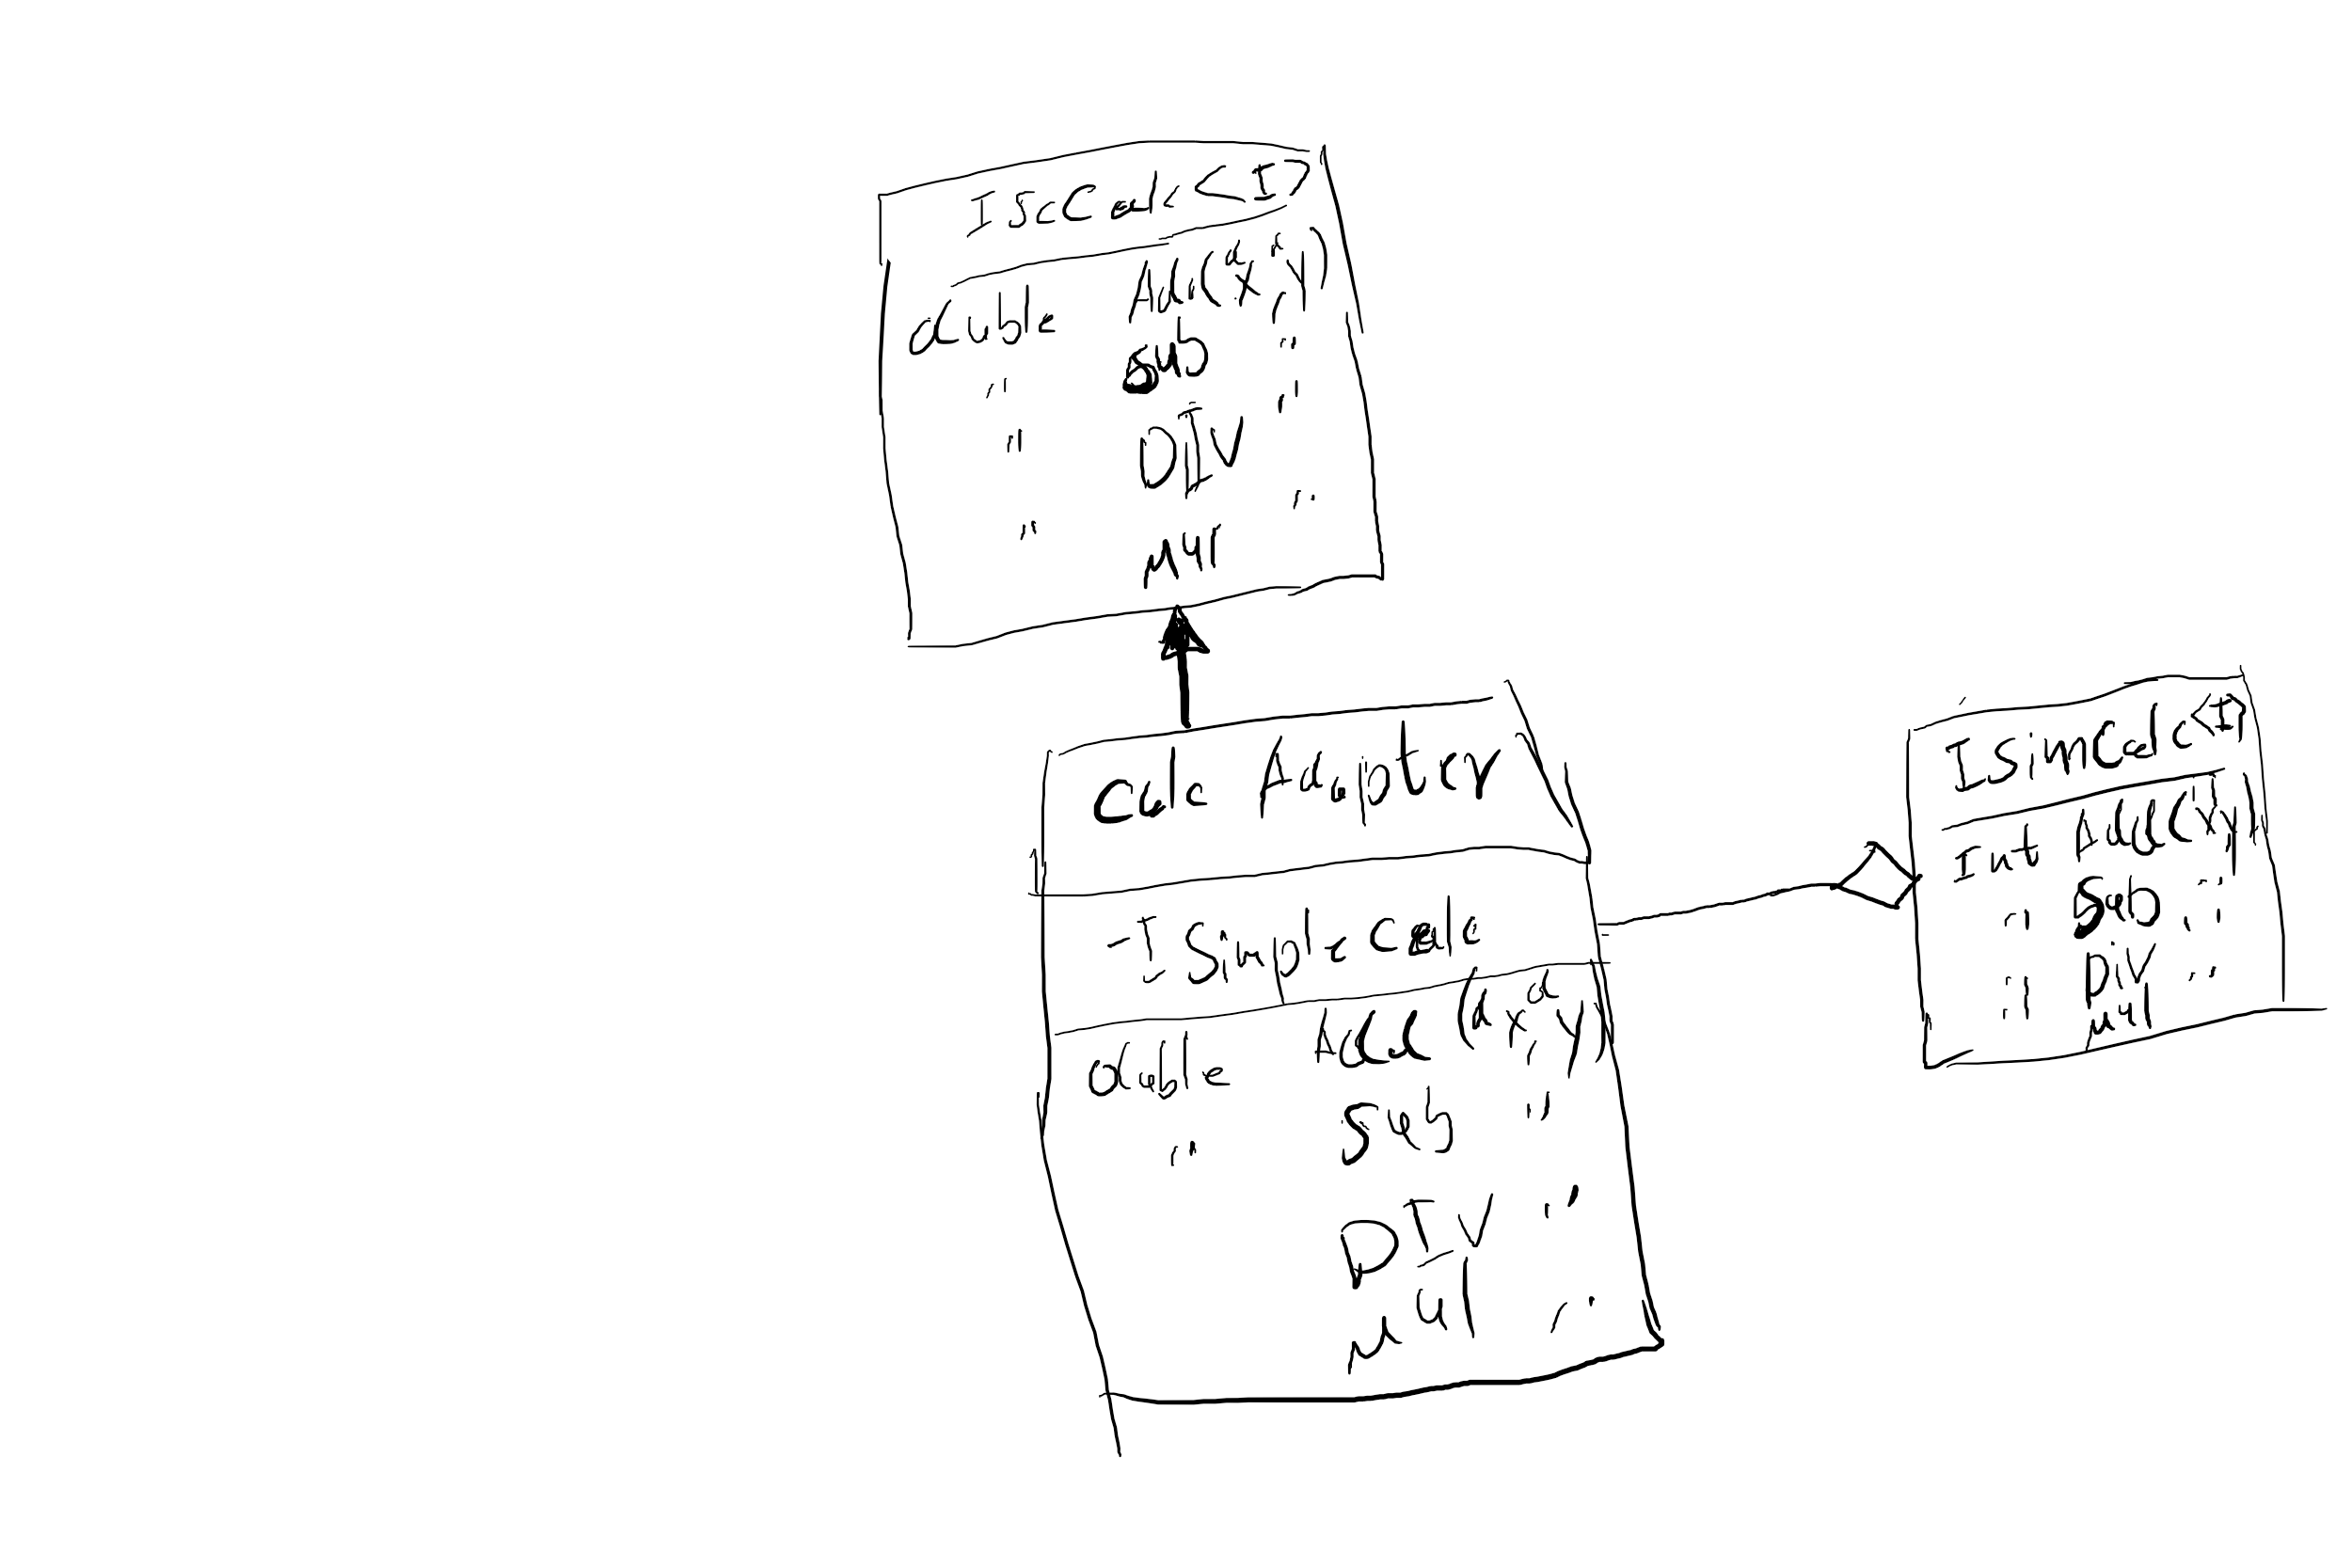 IScCalc<I>
duble Add(dx, dy)
" sub "
" DIV "
" Mul "
Calc Adapter
-I Simple Calc
duble Add (dx, dy)
" Sub "
DIV "
Mul "
ISimCalc<I>
Int Add(x,y)
" Sub "
" Div "
" Mul